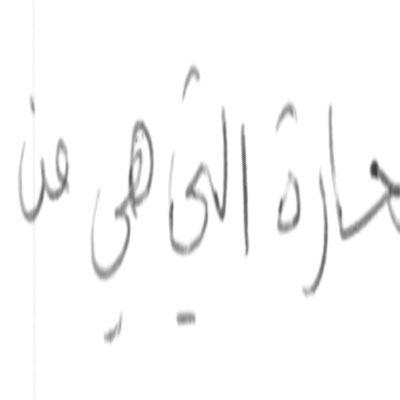 حارة التي هي من